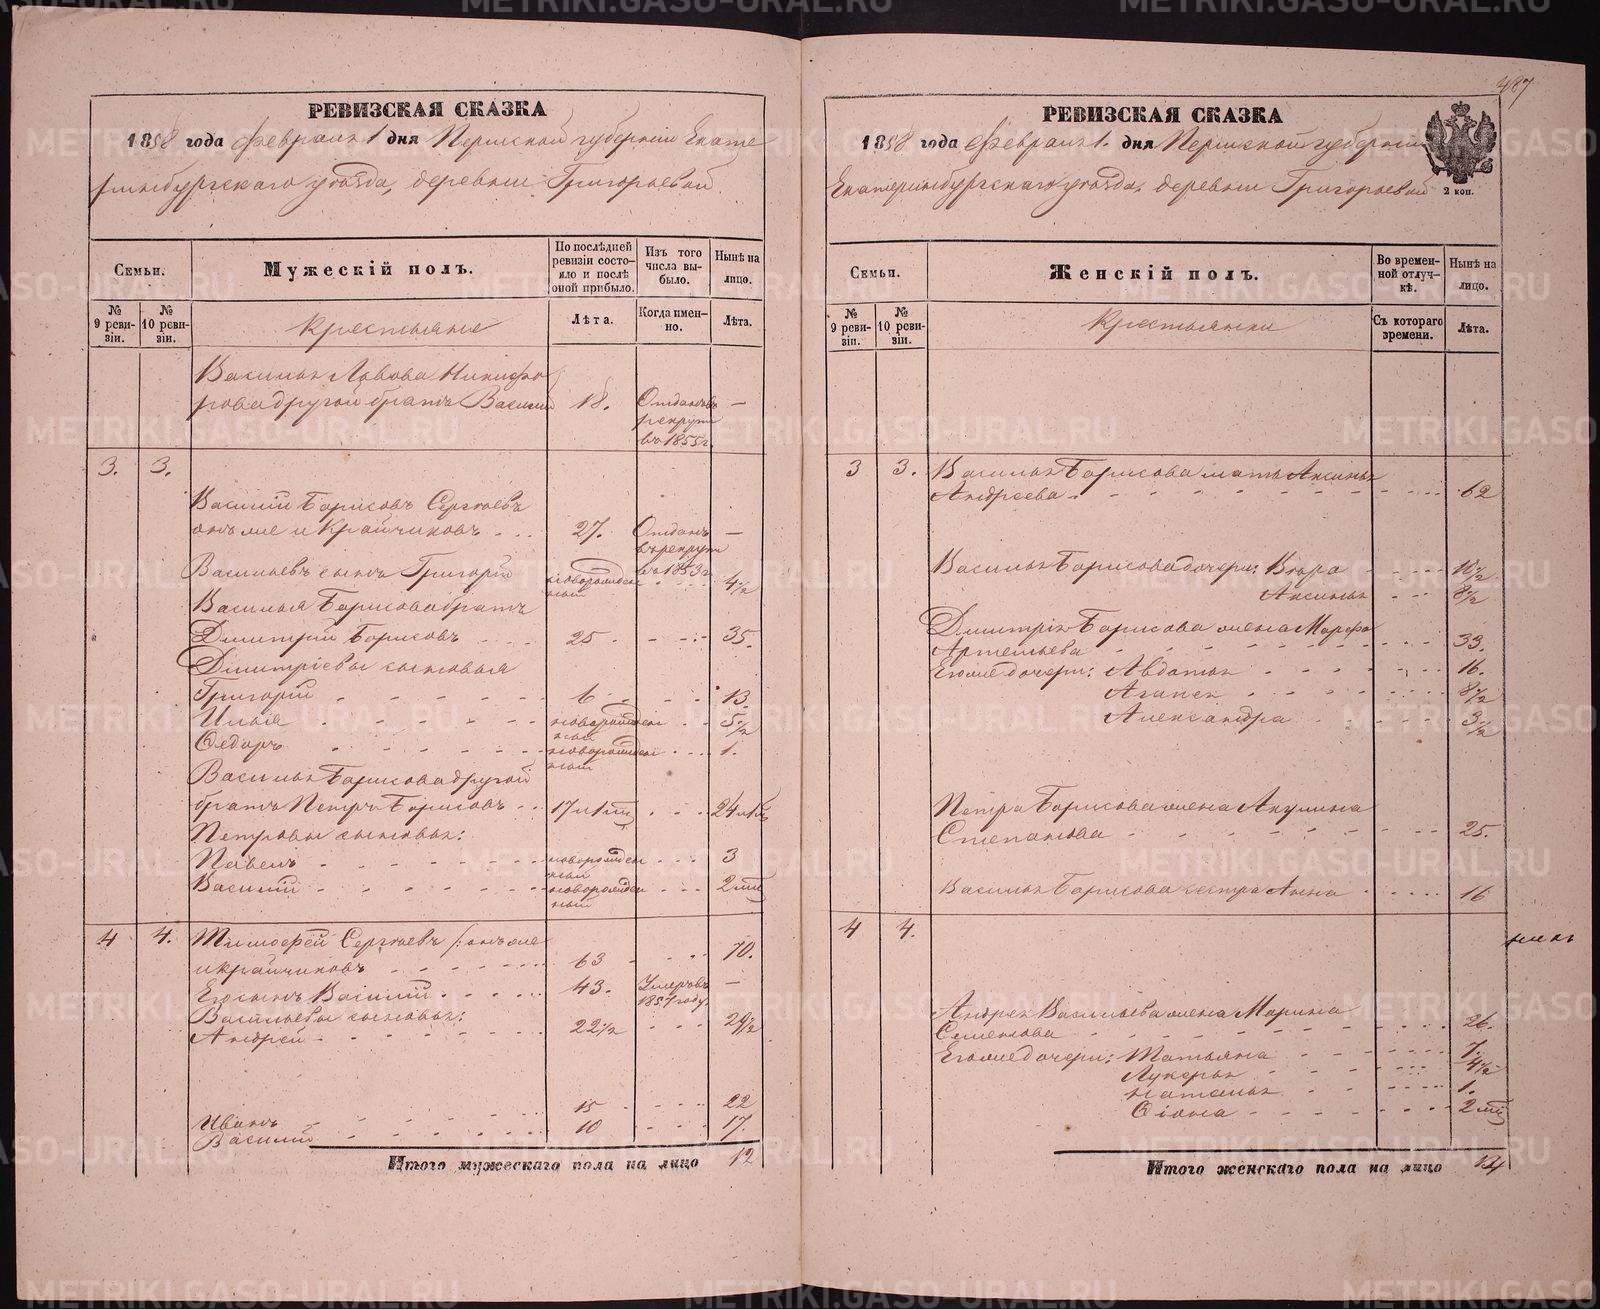 487
РЕВИЗСКАЯ СКАЗКА
1858 года Февраля 1 дня Пермской губернiи Екате
ринбургскаго уѣзда, деревни Григорьевой.
Семьи.
Мужескій полъ.
По послѣдней ревизіи состояло и послѣ оной прибыло.
Изъ того числа выбыло.
Нынѣ на лицо.
№ 9 ревизіи.
№ 10 ревизіи.
Крестьяне
Лѣта.
Когда именно.
Лѣта.
Василья Львова Никифо
рова другой братъ Василій 18. Отданъ въ рекруты въ 1855 г. —
3. 3.
Василій Борисовъ Сергѣевъ
онъ же и Крайчиковъ 27. Отданъ въ рекруты въ 1853 г. —
Васильевъ сынъ Григорій новорожденный 4 1/2
Василья Борисова братъ
Дмитрій Борисовъ 25 35.
Дмитріевы сыновья
Григорій 6 13.
Илья новорожденный 5 1/2
Федоръ новорожденный 1.
Василья Борисова другой
братъ Петръ Борисовъ 17
Петровы сыновья:
Павелъ новорожденный 3
Василій новорожденный 2 мѣ
4 4. Тимофей Сергѣевъ /: онъ же
и Крайчиковъ 63 70.
Его сынъ Василій 43. Умеръ въ 1857 году. —
Васильевы сыновья:
Андрей 22 1/2 29 1/2
Иванъ 15 22
Василій 10 17.
Итого мужескаго пола на лицо 12
РЕВИЗСКАЯ СКАЗКА
1858 года Февраля 1. дня Пермской губерніи
Екатеринбургскаго уѣзда, деревни Григорьевой
2 коп.
Семьи.
Женскій полъ.
Во временной отлучкѣ.
Нынѣ на лицо.
№ 9 ревизіи.
№ 10 ревизіи.
Крестьянки
Съ котораго времени.
Лѣта.
3 3. Василья Борисова мать Аксинья
Андреева 62
Василья Борисова дочери: 10 1/2
Аксинья 8 1/2
Дмитрія Борисова жена Марфа
Артемьева 33.
Его же дочери: Авдотья 16.
Агапея 8 1/2
Александра 3 1/2
Петра Борисова жена Акулина
Степанова 25.
Василья Борисова сестра Анна 16
4 4.
Андрея Васильева жена Марина
Семенова 26.
Его же дочери: Татьяна 7.
Лукерья 4 1/2
Наталья 1.
2 мѣ
Итого женскаго пола на лицо 14
METRIKI.GASO-URAL.RU